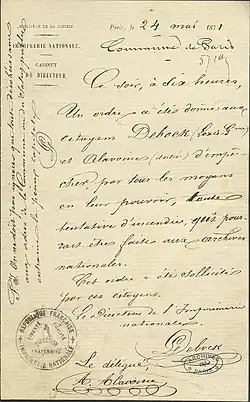 MINISTÈRE DE LA JUSTICE.
IMPRIMERIE NATIONALE.
CABINET
DU DIRECTEUR.
Paris, le 24 mai 1871
Commune de Paris
Ce soir, à six heures,
Un ordre a été donné aux
citoyens Debock (Louis Gme)
et Alavoine (André) d'empê
cher, par tous les moyens
en leur pouvoir, toute
tentative d'incendie, qui pour
rait être faite aux archives
nationales.
Cet ordre a été sollicité
par ces citoyens.
Le directeur de l'Imprimerie
nationale
Debock
Le délégué,
A. Alavoine
RÉPUBLIQUE FRANÇAISE
LIBERTÉ
ÉGALITÉ
FRATERNITÉ
IMPRIMERIE NATIONALE
ARCHIVES